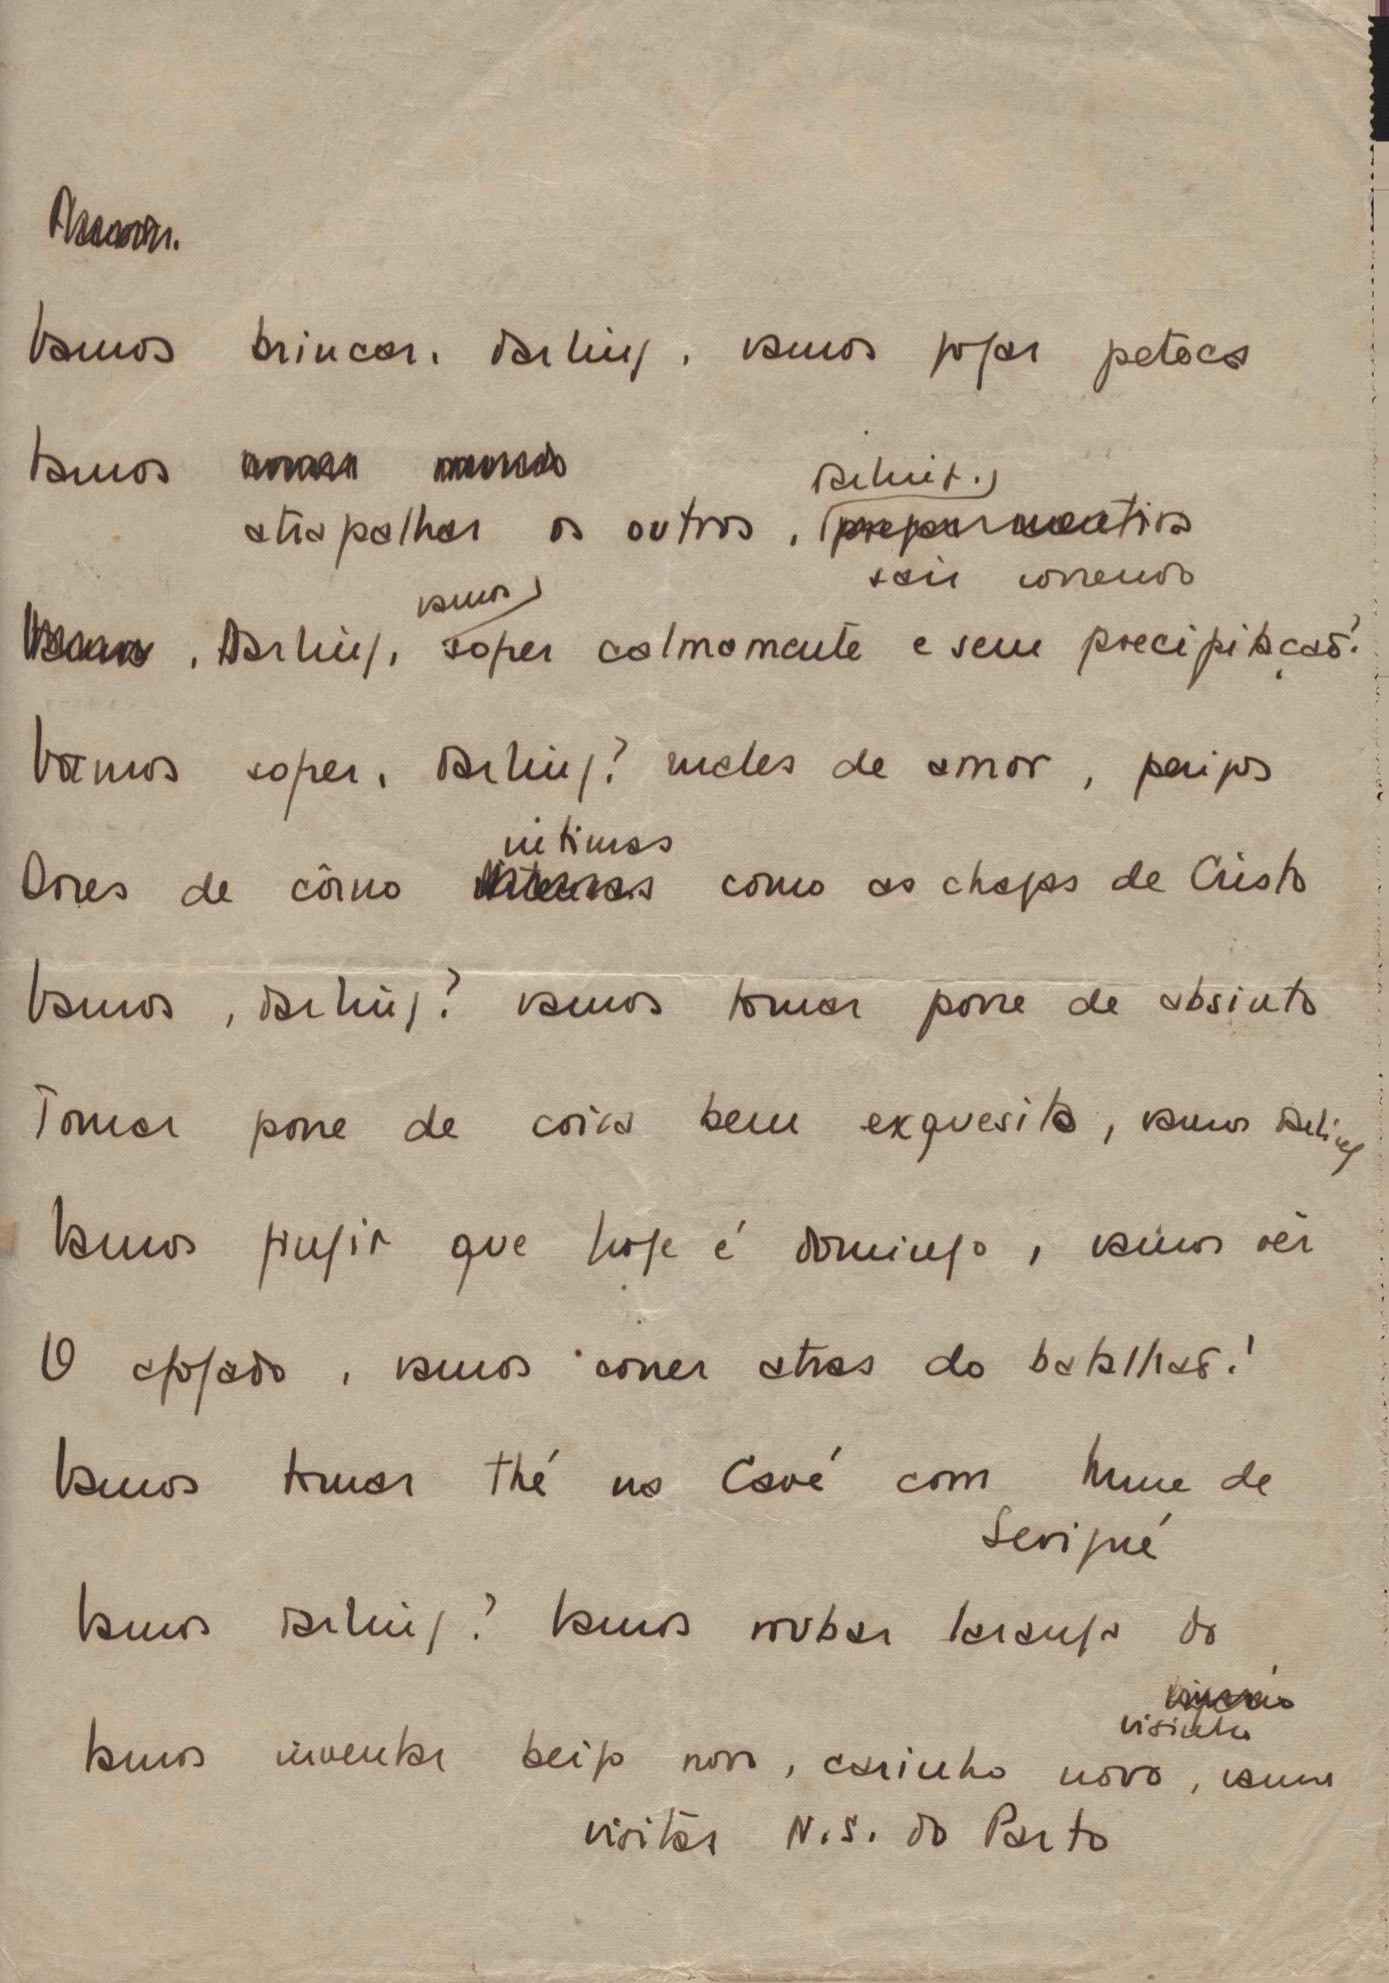 Vamos brincar, darling, vamos jogar peteca
Vamos
darling,
atrapalhar os outros,
sair correndo
vamos
, Darling, sofrer calmamente e sem precipitação?
Vamos sofrer, darling? males de amor, perigos
intimas
Dores de côrno como as chagas de Cristo
Vamos, darling? vamos tomar porre de absinto
Tomar porre de coisa bem exquesita, vamos darling
Vamos fingir que hoje é domingo, vamos vêr
O afogado, vamos correr atras do batalhão?
Vamos tomar thé na Cavé com Mme de
Sevigné
Vamos darling? Vamos roubar laranja do
visinho
Vamos inventar beijo novo, carinho novo, vamos
visitar N.S. do Parto